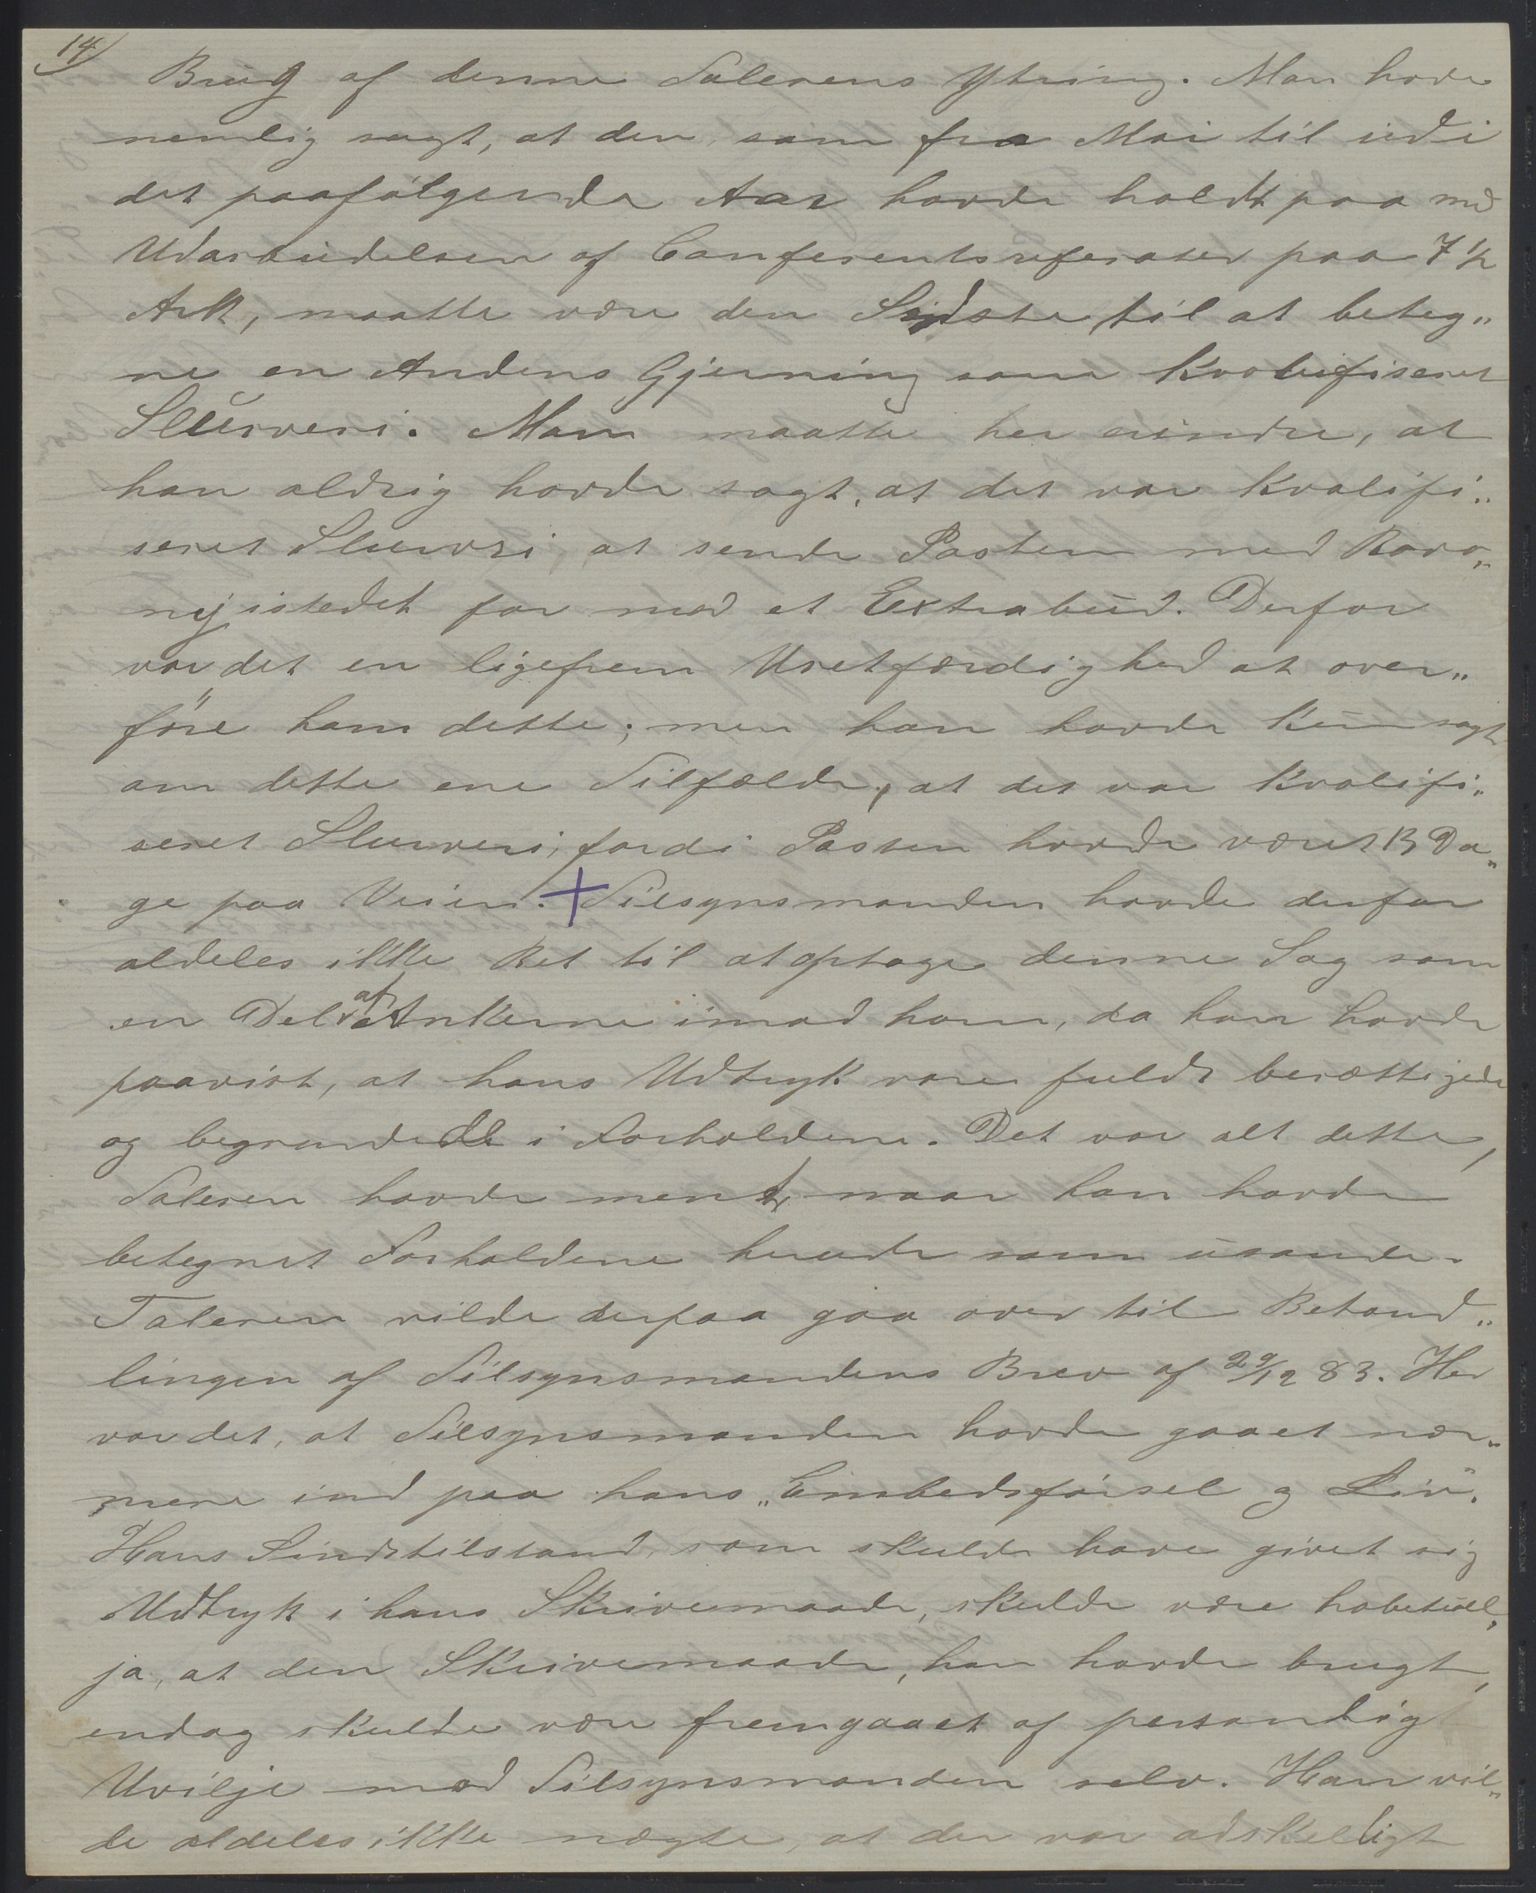 14)
Brug af denne Talerens Ytring. Man havde
nemlig sagt, at den som fra Mai til udi
det paafølgende Aar havde holdt paa med
Udarbeidelsen af Conferentsreferater paa 7 1/2
Ark, maatte være den Sidste til at beteg„
ne en Andens Gjerning som kvalifiseret
Slurveri. Man maatte her erindre, at
han aldrig havde sagt, at det var kvalifi„
seret Slurveri, at sende Posten med Boro„
nij istedet for med et Extrabud. Derfor
var det en ligefrem Uretfærdighed at over„
føre ham dette; men han havde kun sagt
om dette ene Tilfælde, at det var kvalifi„
seret Slurveri, fordi Posten havde været 13 Da„
ge paa Veien. + Tilsynsmanden havde derfor
aldeles ikke Ret til at optage denne Sag som
en Del af Ankerne imod ham, da han havde
paavist, at hans Udtryk vare fuldt berættigede
og begrundede i Forholdene. Det var alt dette,
Taleren havde ment, naar han havde
betegnet Forholdene herude som usande.
Taleren vilde derpaa gaa over til Behand„
lingen af Tilsynsmandens Brev af 29/12 83. Her
var det, at Tilsynsmanden havde gaaet nær„
mere ind paa hans „Embedsførsel og Liv".
Hans Sindstilstand, som skulde have givet sig
Udtryk i hans Skrivemaade, skulde være habituel,
ja, at den Skrivemaade, han havde brugt,
endog skulde være fremgaaet af personlig
Uvilje mod Tilsynsmanden selv. Han vil„
de aldeles ikke nægte, at der var adskelligt